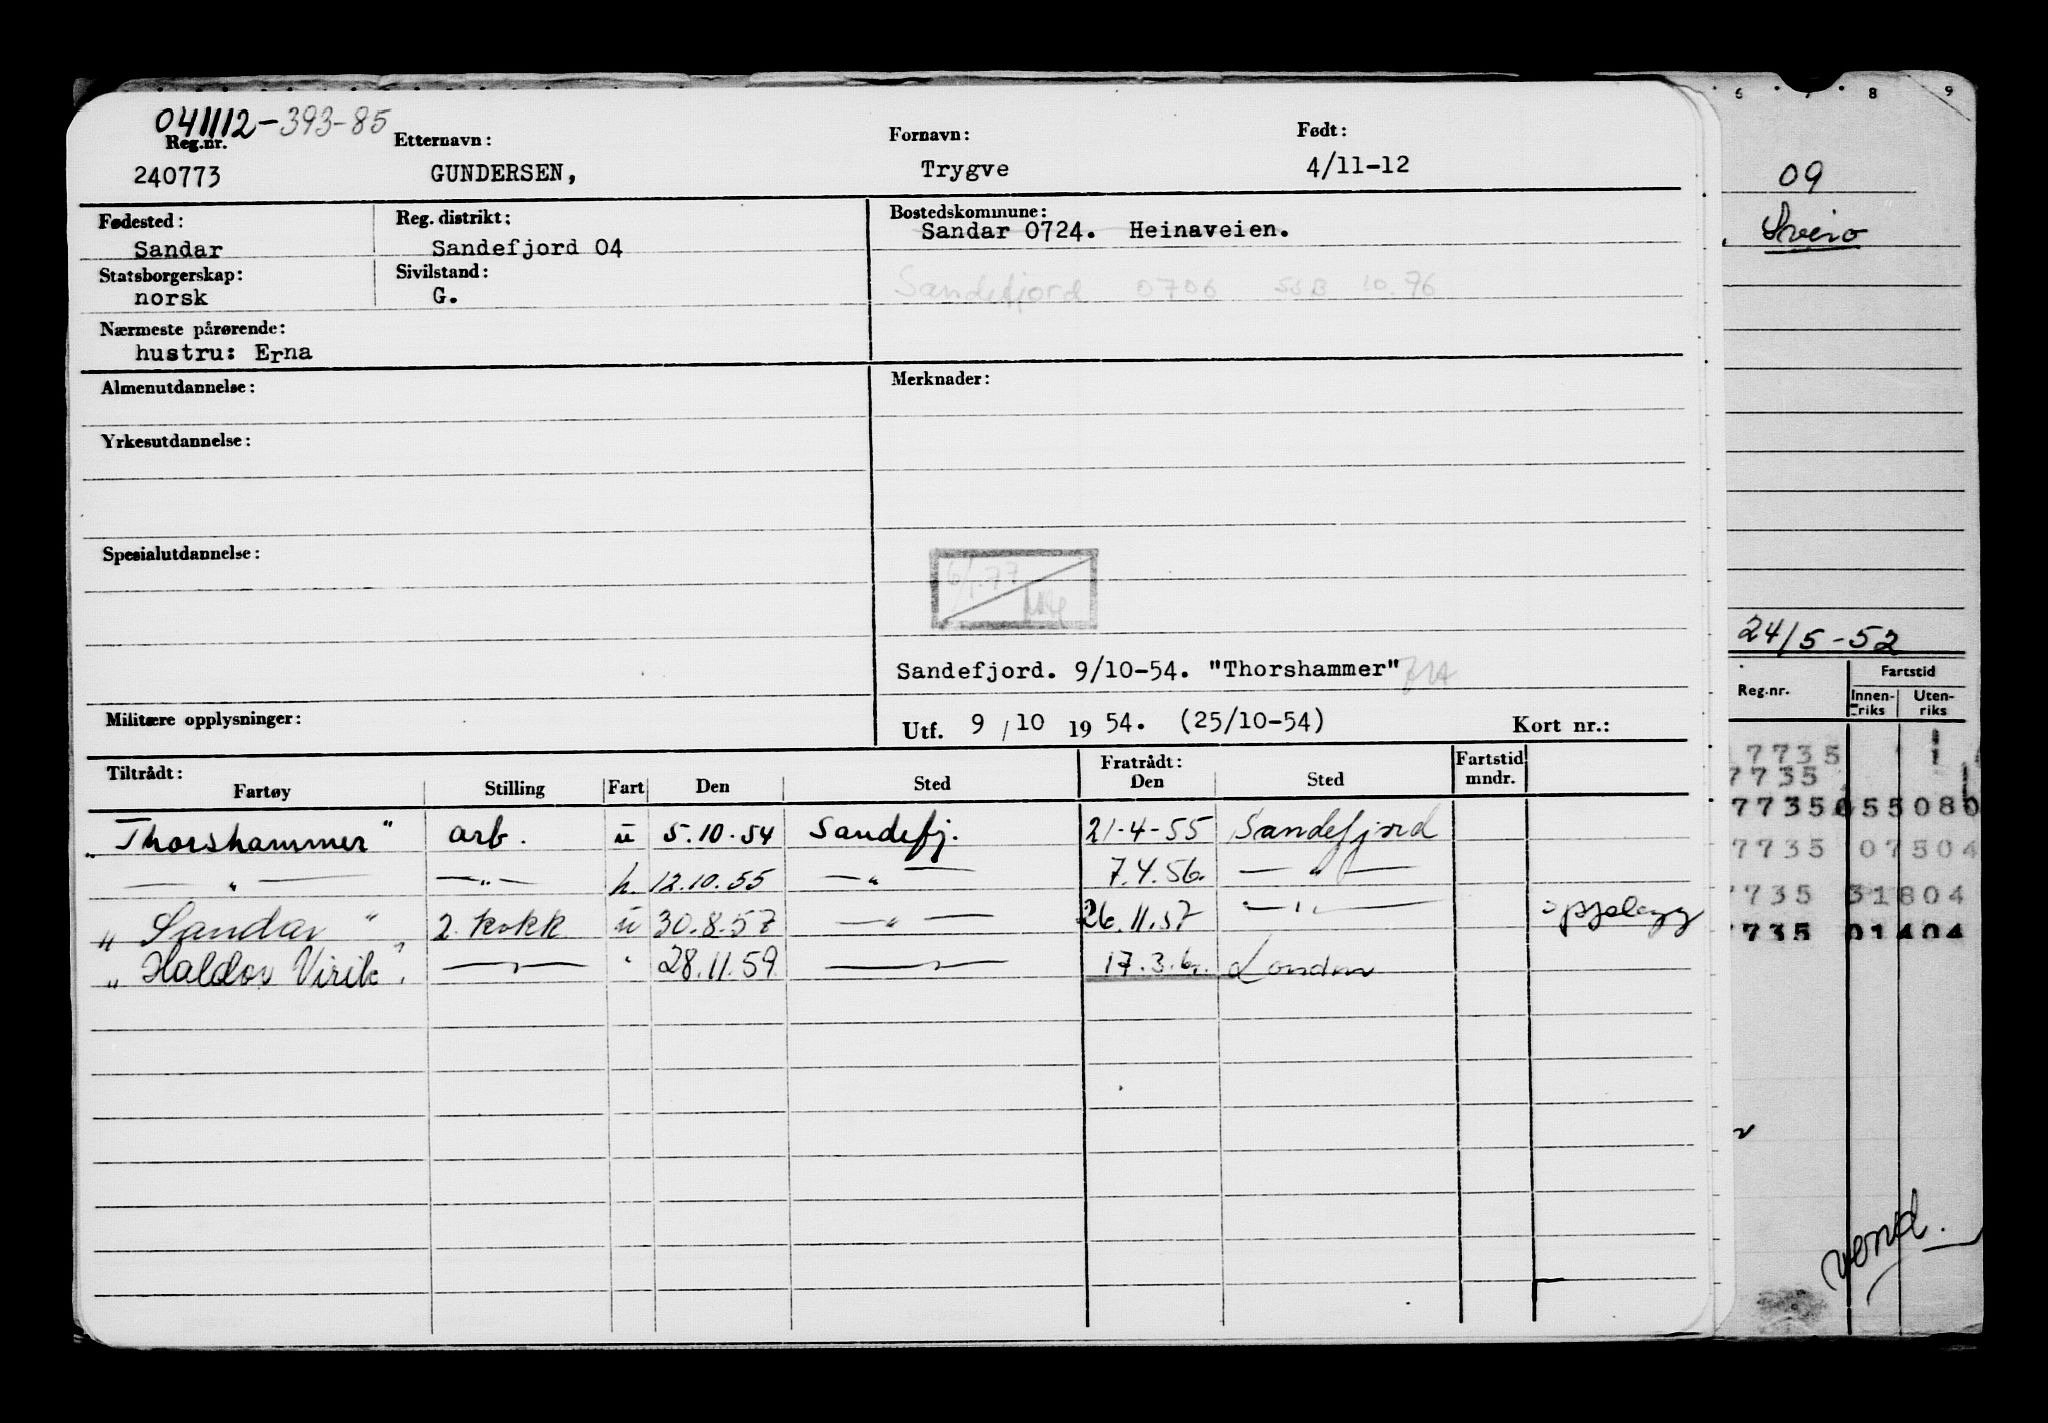 041112-393-85
Reg.nr. Etternavn: Fornavn: Født:
240773 GUNDERSEN, Trygve 4/11-12
Fødested: Reg. distrikt: Bostedskommune:
Sandar Sandefjord 04 Sandar 0724. Heinaveien.
Statsborgerskap: Sivilstand:
norsk G. Sandefjord 0706 SSB 10.76
Nærmeste pårørende:
hustru: Erna
Almenutdannelse: Merknader:
Yrkesutdannelse:
Spesialutdannelse:
Sandefjord. 9/10-54. "Thorshammer"
Militære opplysninger: Utf. 9/10 1954. (25/10-54) Kort nr.:
Tiltrådt: Fratrådt: Fartstid
Fartøy Stilling Fart Den Sted Den Sted mndr.
"Thorshammer" arb. u 5.10.54 Sandefj. 21-4-55 Sandefjord
— " — — " — h. 12.10.55 — " — 7.4.56. — " —
"Sandar" 2. kokk u 30.8.57 — " — 26.11.57 — " —
"Haldor Virik" — " — " 28.11.59 — " — 17.3. London
6 7 8 9
09
Sveio
24/5-52
Fartstid
Reg.nr. Innen- Uten-
riks riks
7735 1
7735
7735 055080
7735 07504
7735 31804
7735 01404
vend.